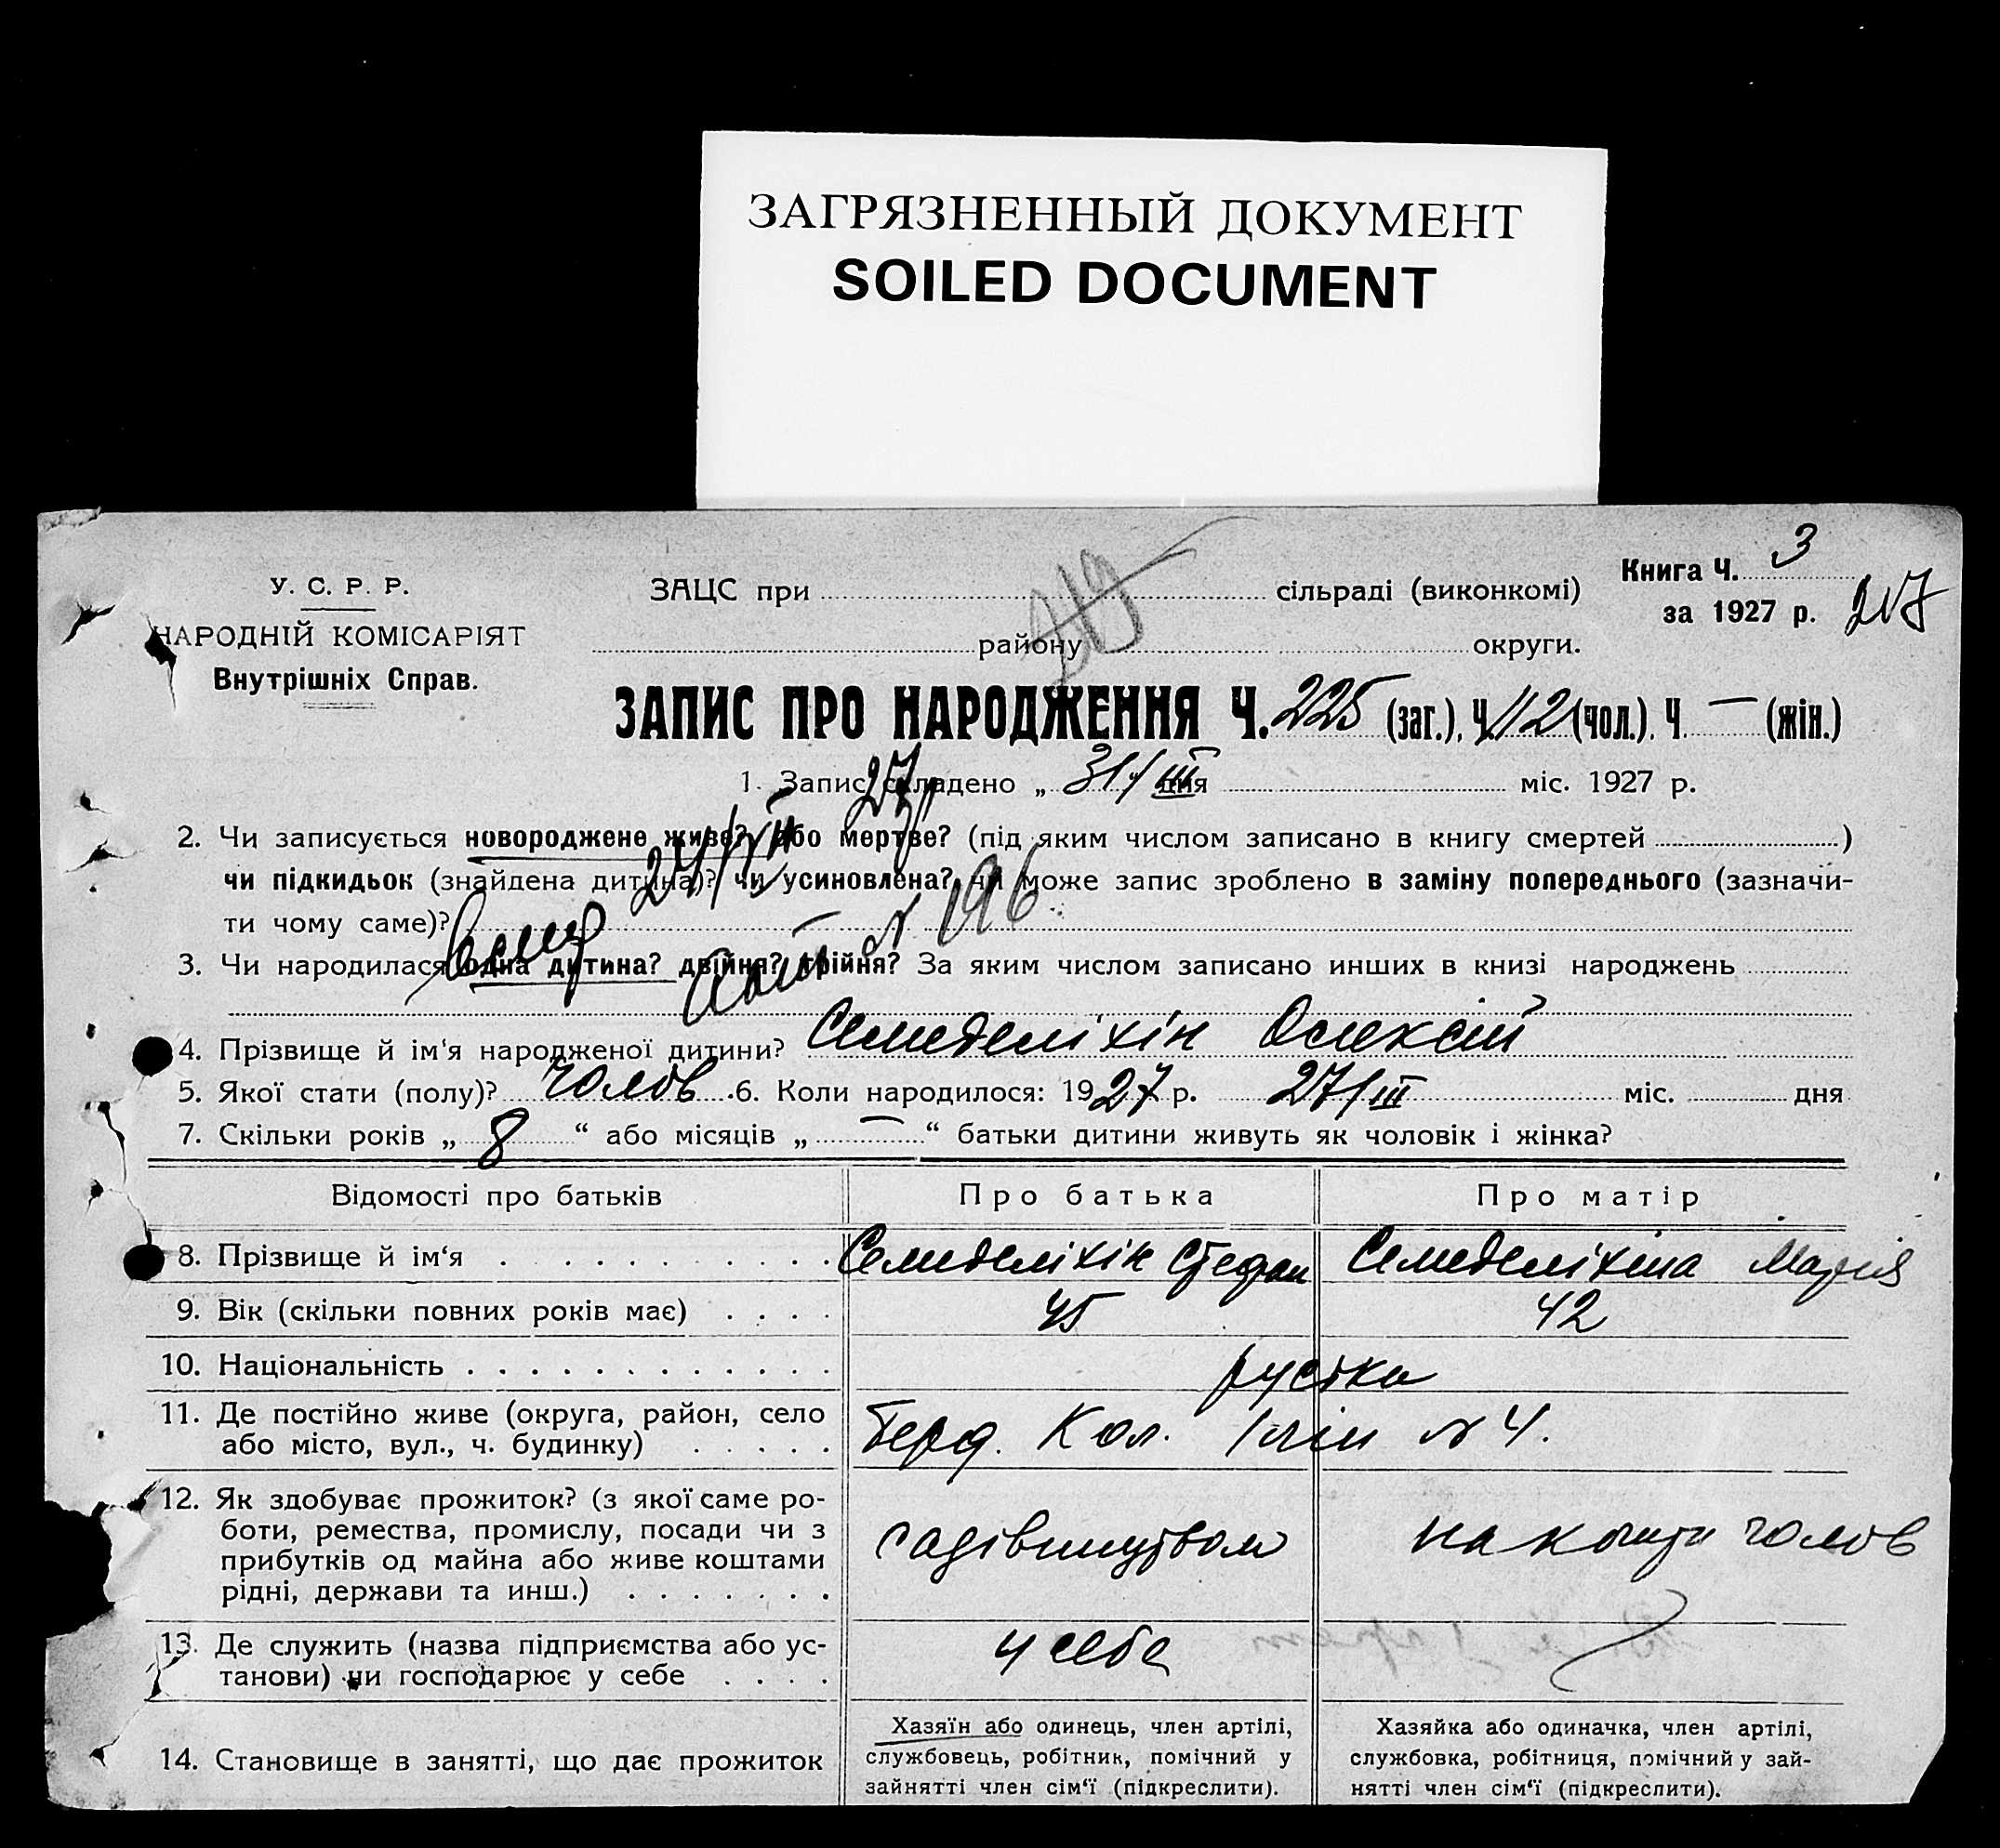 ЗАГРЯЗНЕННЫЙ ДОКУМЕНТ
SOILED DOCUMENT
У. С. Р. Р.
НАРОДНІЙ КОМІСАРІЯТ
Внутрішніх Справ.
ЗАЦС при сільраді (виконкомі)
району округи.
Книга Ч. 3
за 1927 р. 217
ЗАПИС ПРО НАРОДЖЕННЯ Ч. 225 (заг.), Ч. 112 (чол.). Ч. — (жін.)
1. Запис складено „ 31/III дня міс. 1927 р.
2. Чи записується новороджене живе? або мертве? (під яким числом записано в книгу смертей )
чи підкидьок (знайдена дитина)? чи усиновлена? чи може запис зроблено в заміну попереднього (зазначи-
ти чому саме)?
3. Чи народилася одна дитина? двійня? трійня? За яким числом записано инших в книзі народжень
№ 196
4. Прізвище й ім'я народженої дитини? Семиделіхін Олексій
5. Якої стати (полу)? Чолов. 6. Коли народилося: 1927 р. 27/III міс. дня
7. Скільки років „ 8 “ або місяців „ — “ батьки дитини живуть як чоловік і жінка?
Відомості про батьків Про батька Про матір
8. Прізвище й ім'я Семиделіхін Стефан Семиделіхіна Марія
9. Вік (скільки повних років має) 45 42
10. Національність руська
11. Де постійно живе (округа, район, село
або місто, вул., ч. будинку) Берд. Кол. № 4.
12. Як здобуває прожиток? (з якої саме ро-
боти, ремества, промислу, посади чи з
прибутків од майна або живе коштами
рідні, держави та инш.) садівництвом на кошти чолов
13. Де служить (назва підприємства або ус-
танови) чи господарює у себе у себе
14. Становище в занятті, що дає прожиток
Хазяїн або одинець, член артілі,
службовець, робітник, помічний у
зайнятті член сім'ї (підкреслити).
Хазяйка або одиначка, член артілі,
службовка, робітниця, помічний у зай-
нятті член сім'ї (підкреслити).